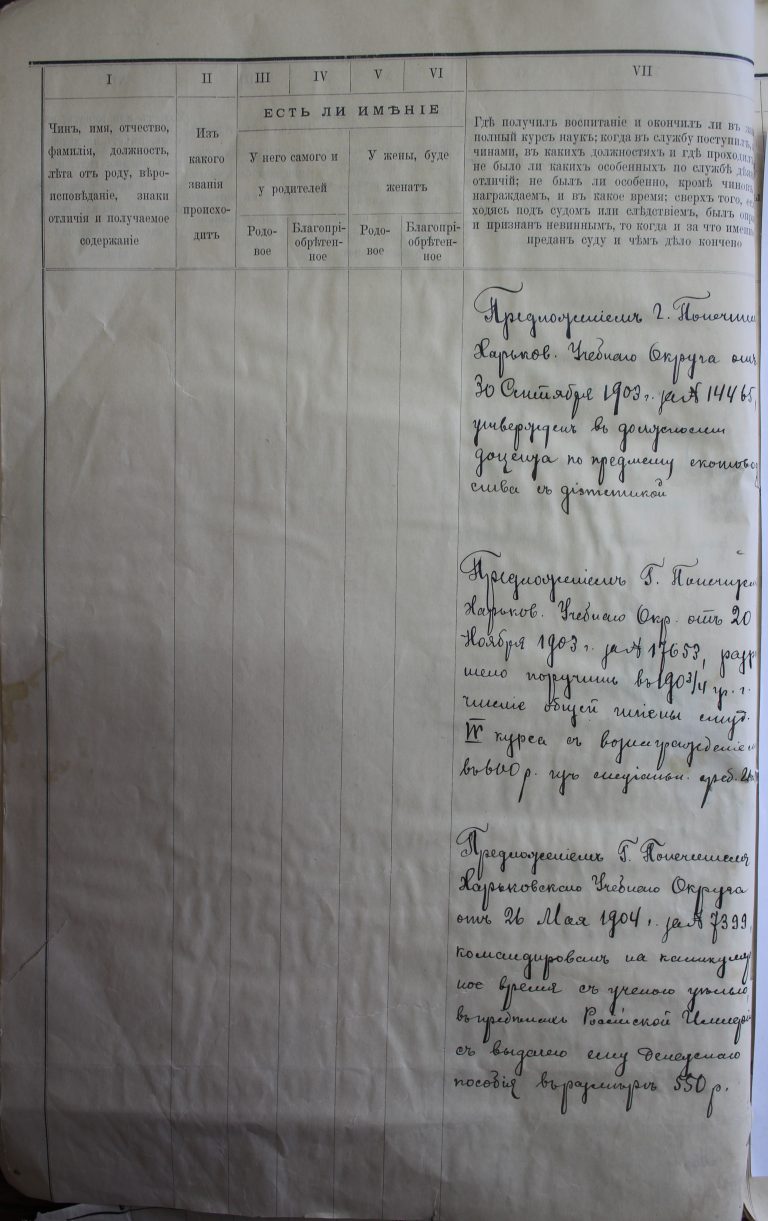 I
II
III
IV
V
VI
VII
Чинъ, имя, отчество,
фамилія, должность,
лѣта отъ роду, вѣро-
исповѣданіе, знаки
отличія и получаемое
содержаніе
Изъ
какого
званія
происхо-
дитъ
ЕСТЬ ЛИ ИМѢНІЕ
У него самого и
у родителей
У жены, буде
женатъ
Родо-
вое
Благопрі-
обрѣтен-
ное
Родо-
вое
Благопрі-
обрѣтен-
ное
Гдѣ получилъ воспитаніе и окончилъ ли въ
полный курсъ наукъ; когда въ службу поступилъ,
чинами, въ какихъ должностяхъ и гдѣ проходилъ
не было ли какихъ особенныхъ по службѣ дѣя
отличій; не былъ ли особенно, кромѣ чиновъ
награждаемъ, и въ какое время; сверхъ того,
ходясь подъ судомъ или слѣдствіемъ, былъ опр
и признанъ невиннымъ, то когда и за что имен
преданъ суду и чѣмъ дѣло кончено
Предложеніемъ Г. Попечит
Харьков. Учебнаго Округа отъ
30 Сентября 1903 г. за № 14465,
утвержденъ въ должности
доцента по предмету скотовод
ства съ діэтетикой
Предложеніемъ Г. Попечител
Харьков. Учебнаго Окр. отъ 20
Ноября 1903 г. за № 17653, разр
шено поручить въ 1903/4 уч. г.
чтеніе общей гигіены студ.
IV курса съ вознагражденіем
въ 600 р. изъ спеціальн. сред.
Предложеніемъ Г. Попечителя
Харьковскаго Учебнаго Округа
отъ 26 Мая 1904 г. за № 7399,
командированъ на каникуляр
ное время съ ученою цѣлью,
въ предѣлахъ Россійской Импер
съ выдачею ему денежнаго
пособія въ размѣрѣ 550 р.